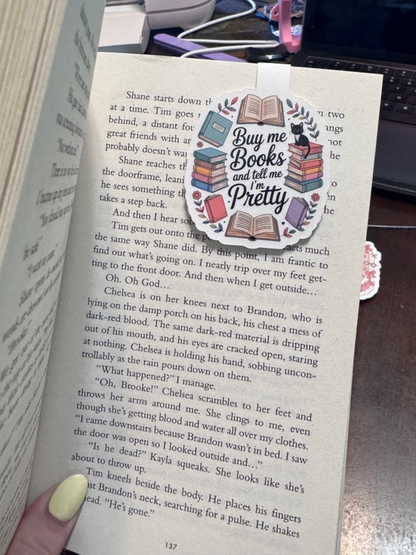 Shane starts down th
two
at a time. Tim goes
ngs
behind, a distant fo
not
great friends with an
he
probably doesn't wa
Shane reaches th
the doorframe, lean
he sees something th
takes a step back.
And then I hear so
Tim gets out onto the p
acts much
the same way Shane did. By this point, I am frantic to
find out what's going on. I nearly trip over my feet get-
ting to the front door. And then when I get outside…
Oh. Oh God…
Chelsea is on her knees next to Brandon, who is
lying on the damp porch on his back, his chest a mess of
dark-red blood. The same dark-red material is dripping
out of his mouth, and his eyes are cracked open, staring
at nothing. Chelsea is holding his hand, sobbing uncon-
trollably as the rain pours down on them.
"What happened?" I manage.
"Oh, Brooke!" Chelsea scrambles to her feet and
throws her arms around me. She clings to me, even
though she's getting blood and water all over my clothes.
"I came downstairs because Brandon wasn't in bed. I saw
the door was open so I looked outside and…"
"Is he dead?" Kayla squeaks. She looks like she's
about to throw up.
Tim kneels beside the body. He places his fingers
st Brandon's neck, searching for a pulse. He shakes
ead. "He's gone."
137
Buy me
Books
and tell me
I'm
Pretty